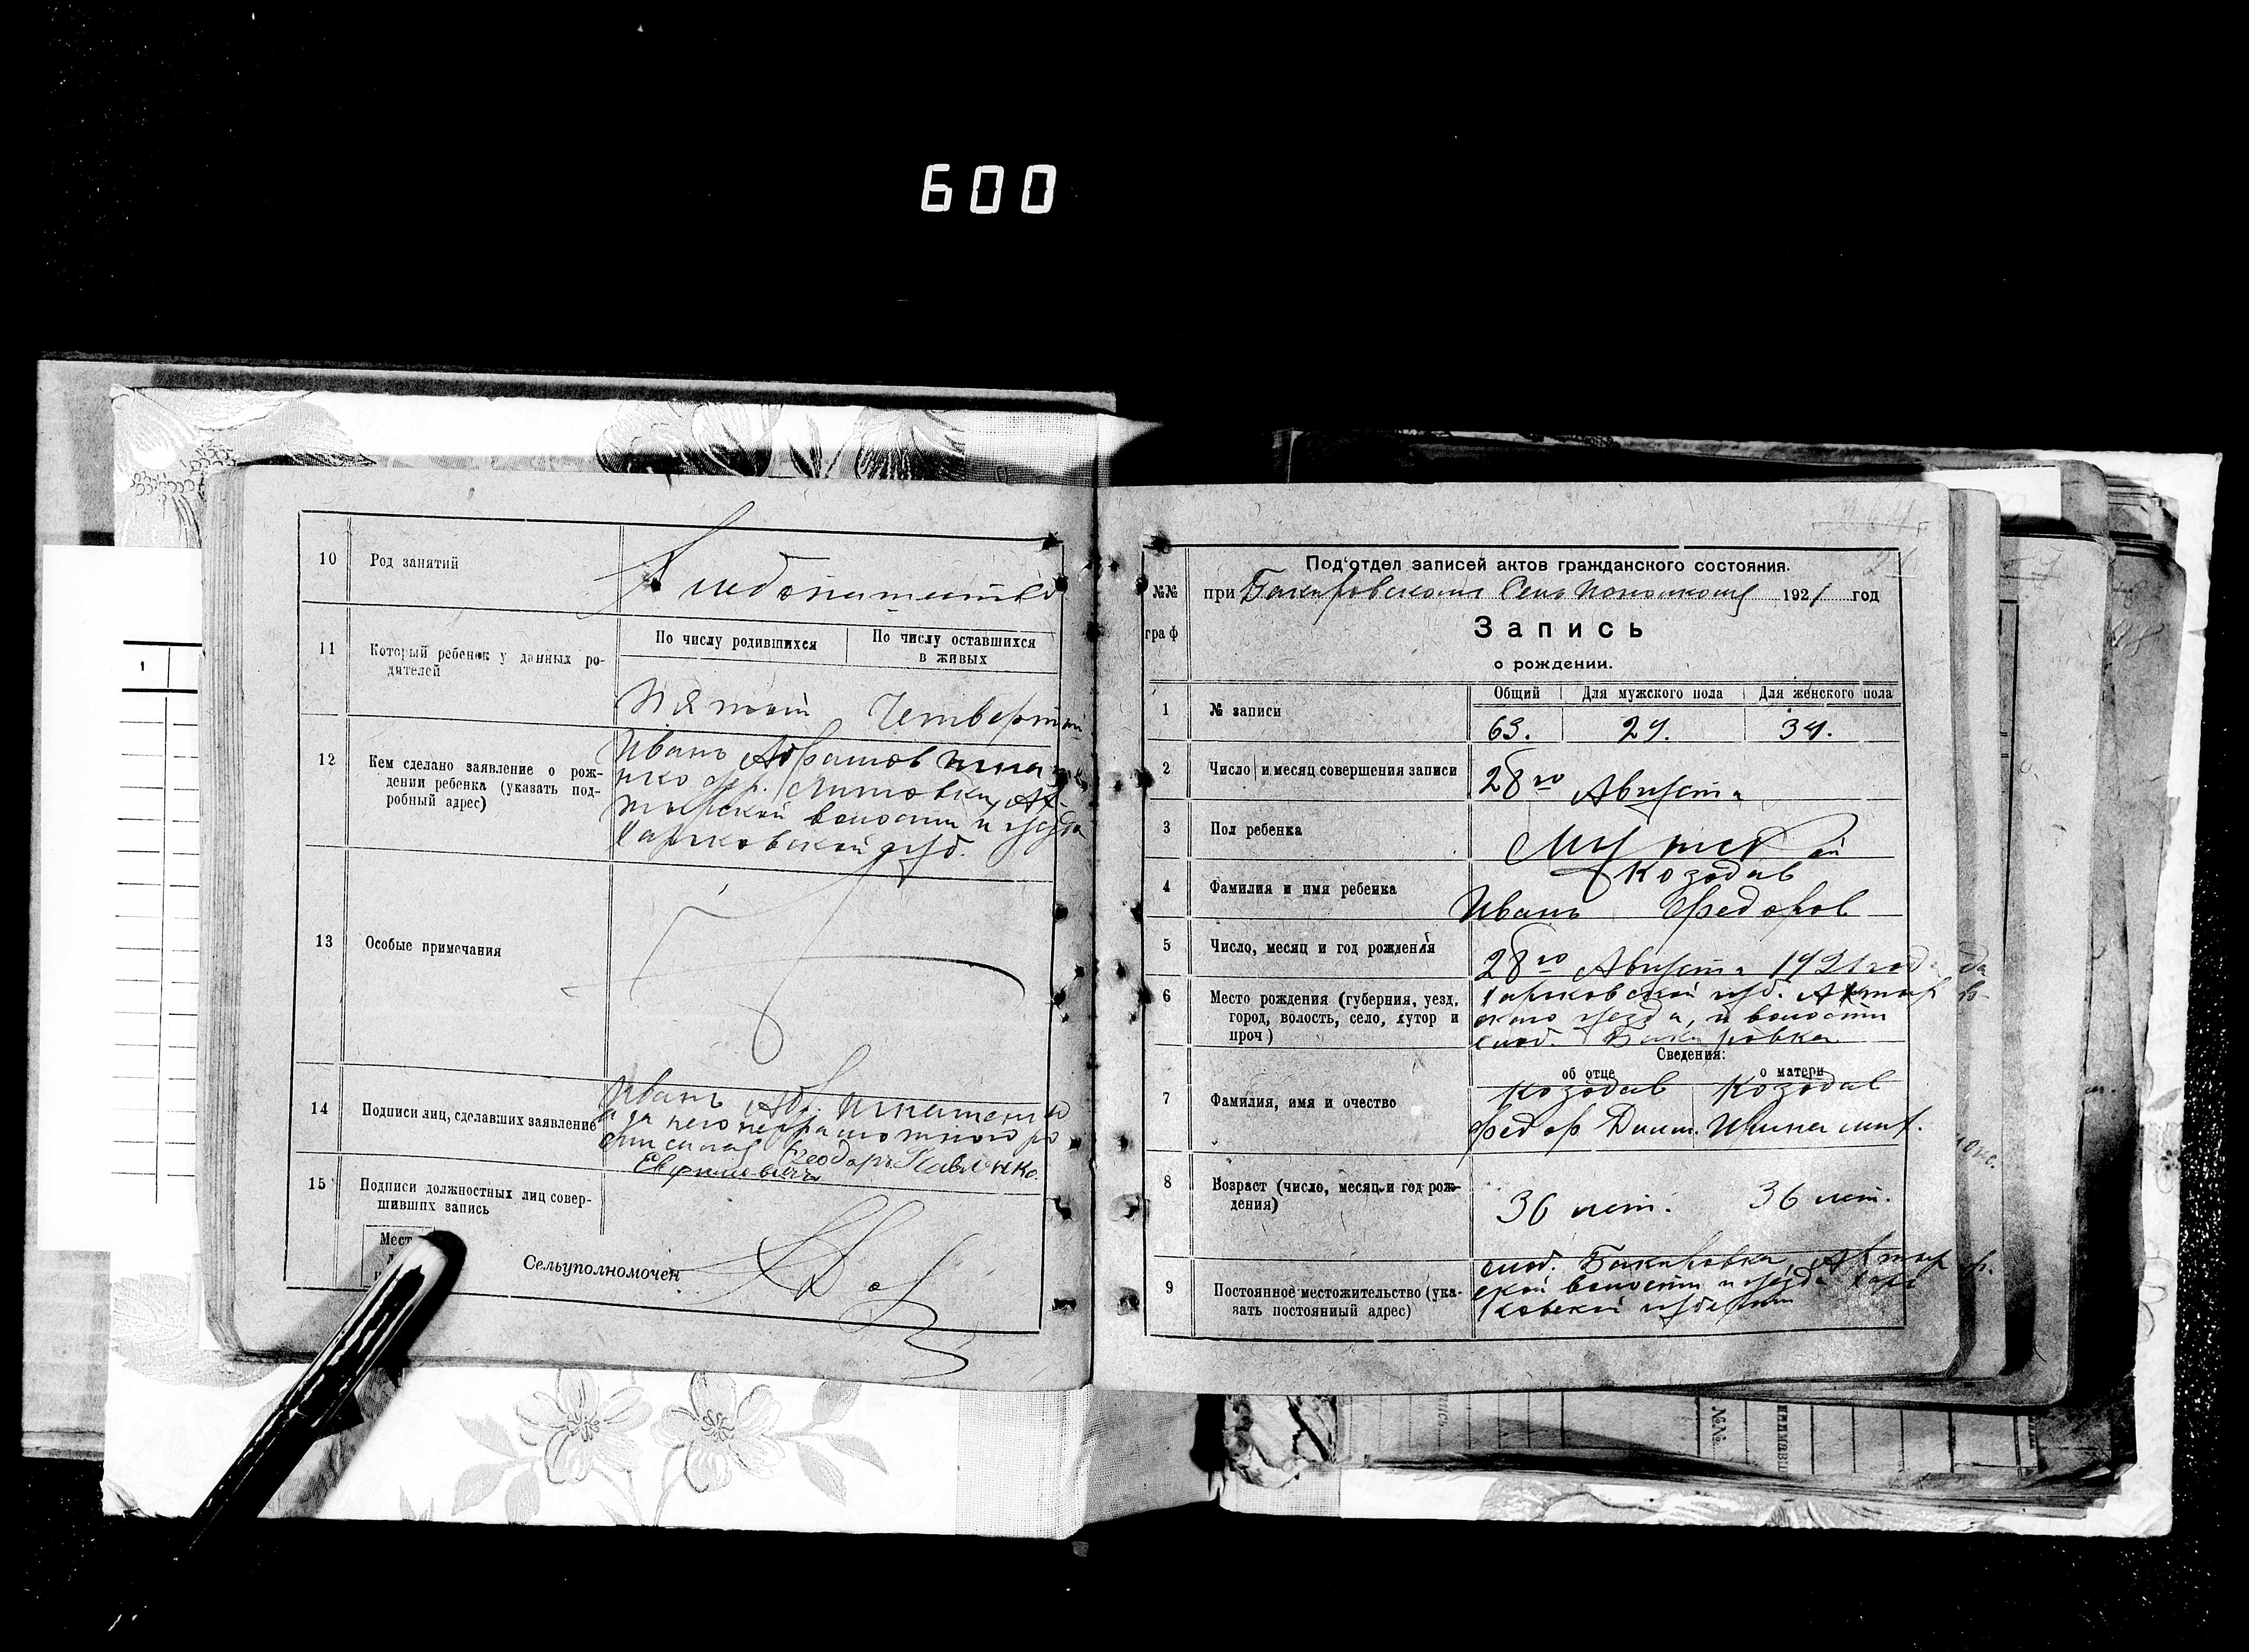 600
10 Род занятий Хлебопашество
11 Который ребенок у данных ро-
дителей
По числу родившихся По числу оставшихся
в живых
Пятый Четвертый
12 Кем сделано заявление о рож-
дении ребенка (указать под-
робный адрес)
Иванъ Абрамов Игнатен
ко
Литовки, Ах-
тырской волости и уезда
Харьковской губ.
13 Особые примечания
14 Подписи лиц, сделавших заявление
Иванъ Аб. Игнатенко
а за него неграмотного ро
списался Феодоръ Павленко
15 Подписи должностных лиц совер-
шивших запись
Мест
Сельуполномочен
№№
граф
Под'отдел записей актов гражданского состояния.
при Бакировском 1921 год
Запись
о рождении.
1 № записи
Общий Для мужского пола Для женского пола
63. 29. 34.
2 Число и месяц совершения записи 28го Августа
3 Пол ребенка Мужской
4 Фамилия и имя ребенка Козодав
Иванъ Федоров
5 Число, месяц и год рождения 28го Августа 1921 года
6 Место рождения (губерния, уезд,
город, волость, село, хутор и
проч)
Харьковской губ. Ахтыр
ского уезда, и волости
слоб. Бакировка
Сведения:
об отце о матери
7 Фамилия, имя и очество
Козодав Козодав
Федор Дмит.
8 Возраст (число, месяц и год рож-
дения)
36 лет. 36 лет.
9 Постоянное местожительство (ука-
зать постоянный адрес)
слоб. Бакировка, Ахтыр
ской волости и уезда Харь
ковской губернии